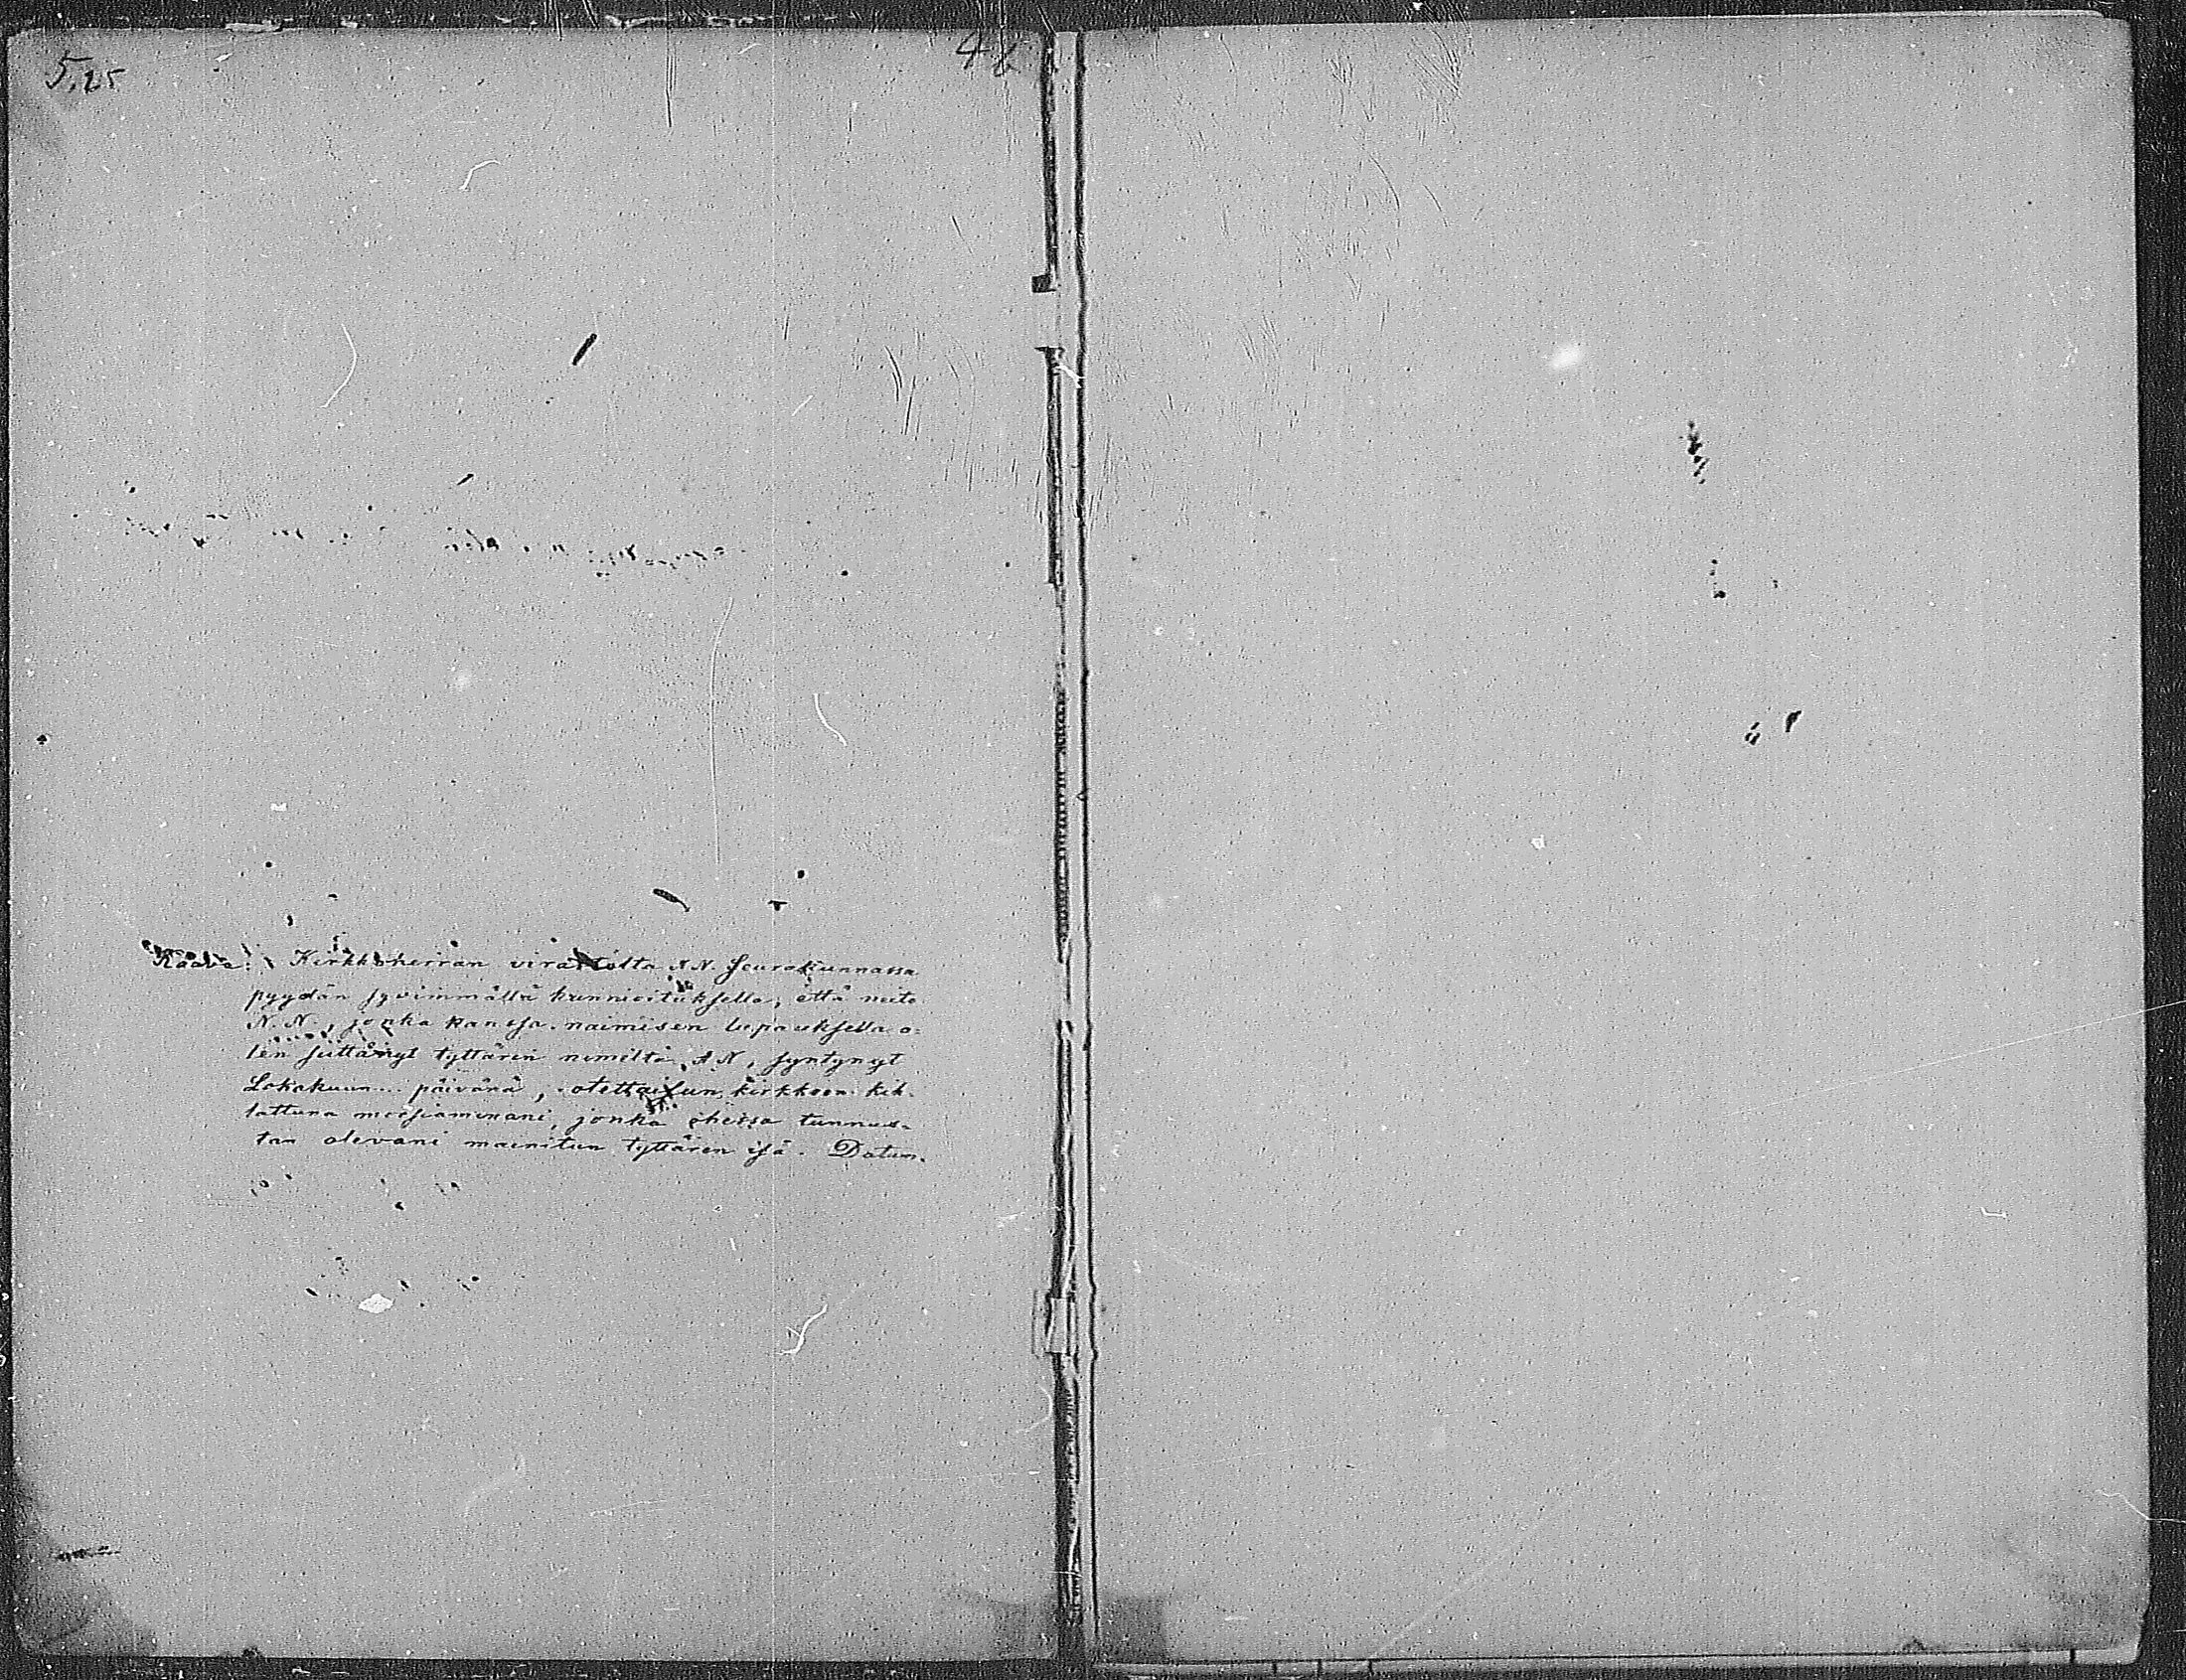 5.25
46
Kaava: Kirkkoherran virastolta N.N. Seurakunnassa
pyydän syvimmällä kunnioituksella, että neito
N.N., jonka kanssa naimisen lupauksella o-
len siittänyt tyttären nimeltä N.N., syntynyt
Lokakuun... päivänä, otettaisiin kirkkoon kih-
lattuna morsiamenani, jonka ohessa tunnus-
tan olevani mainitun tyttären isä. Datum.